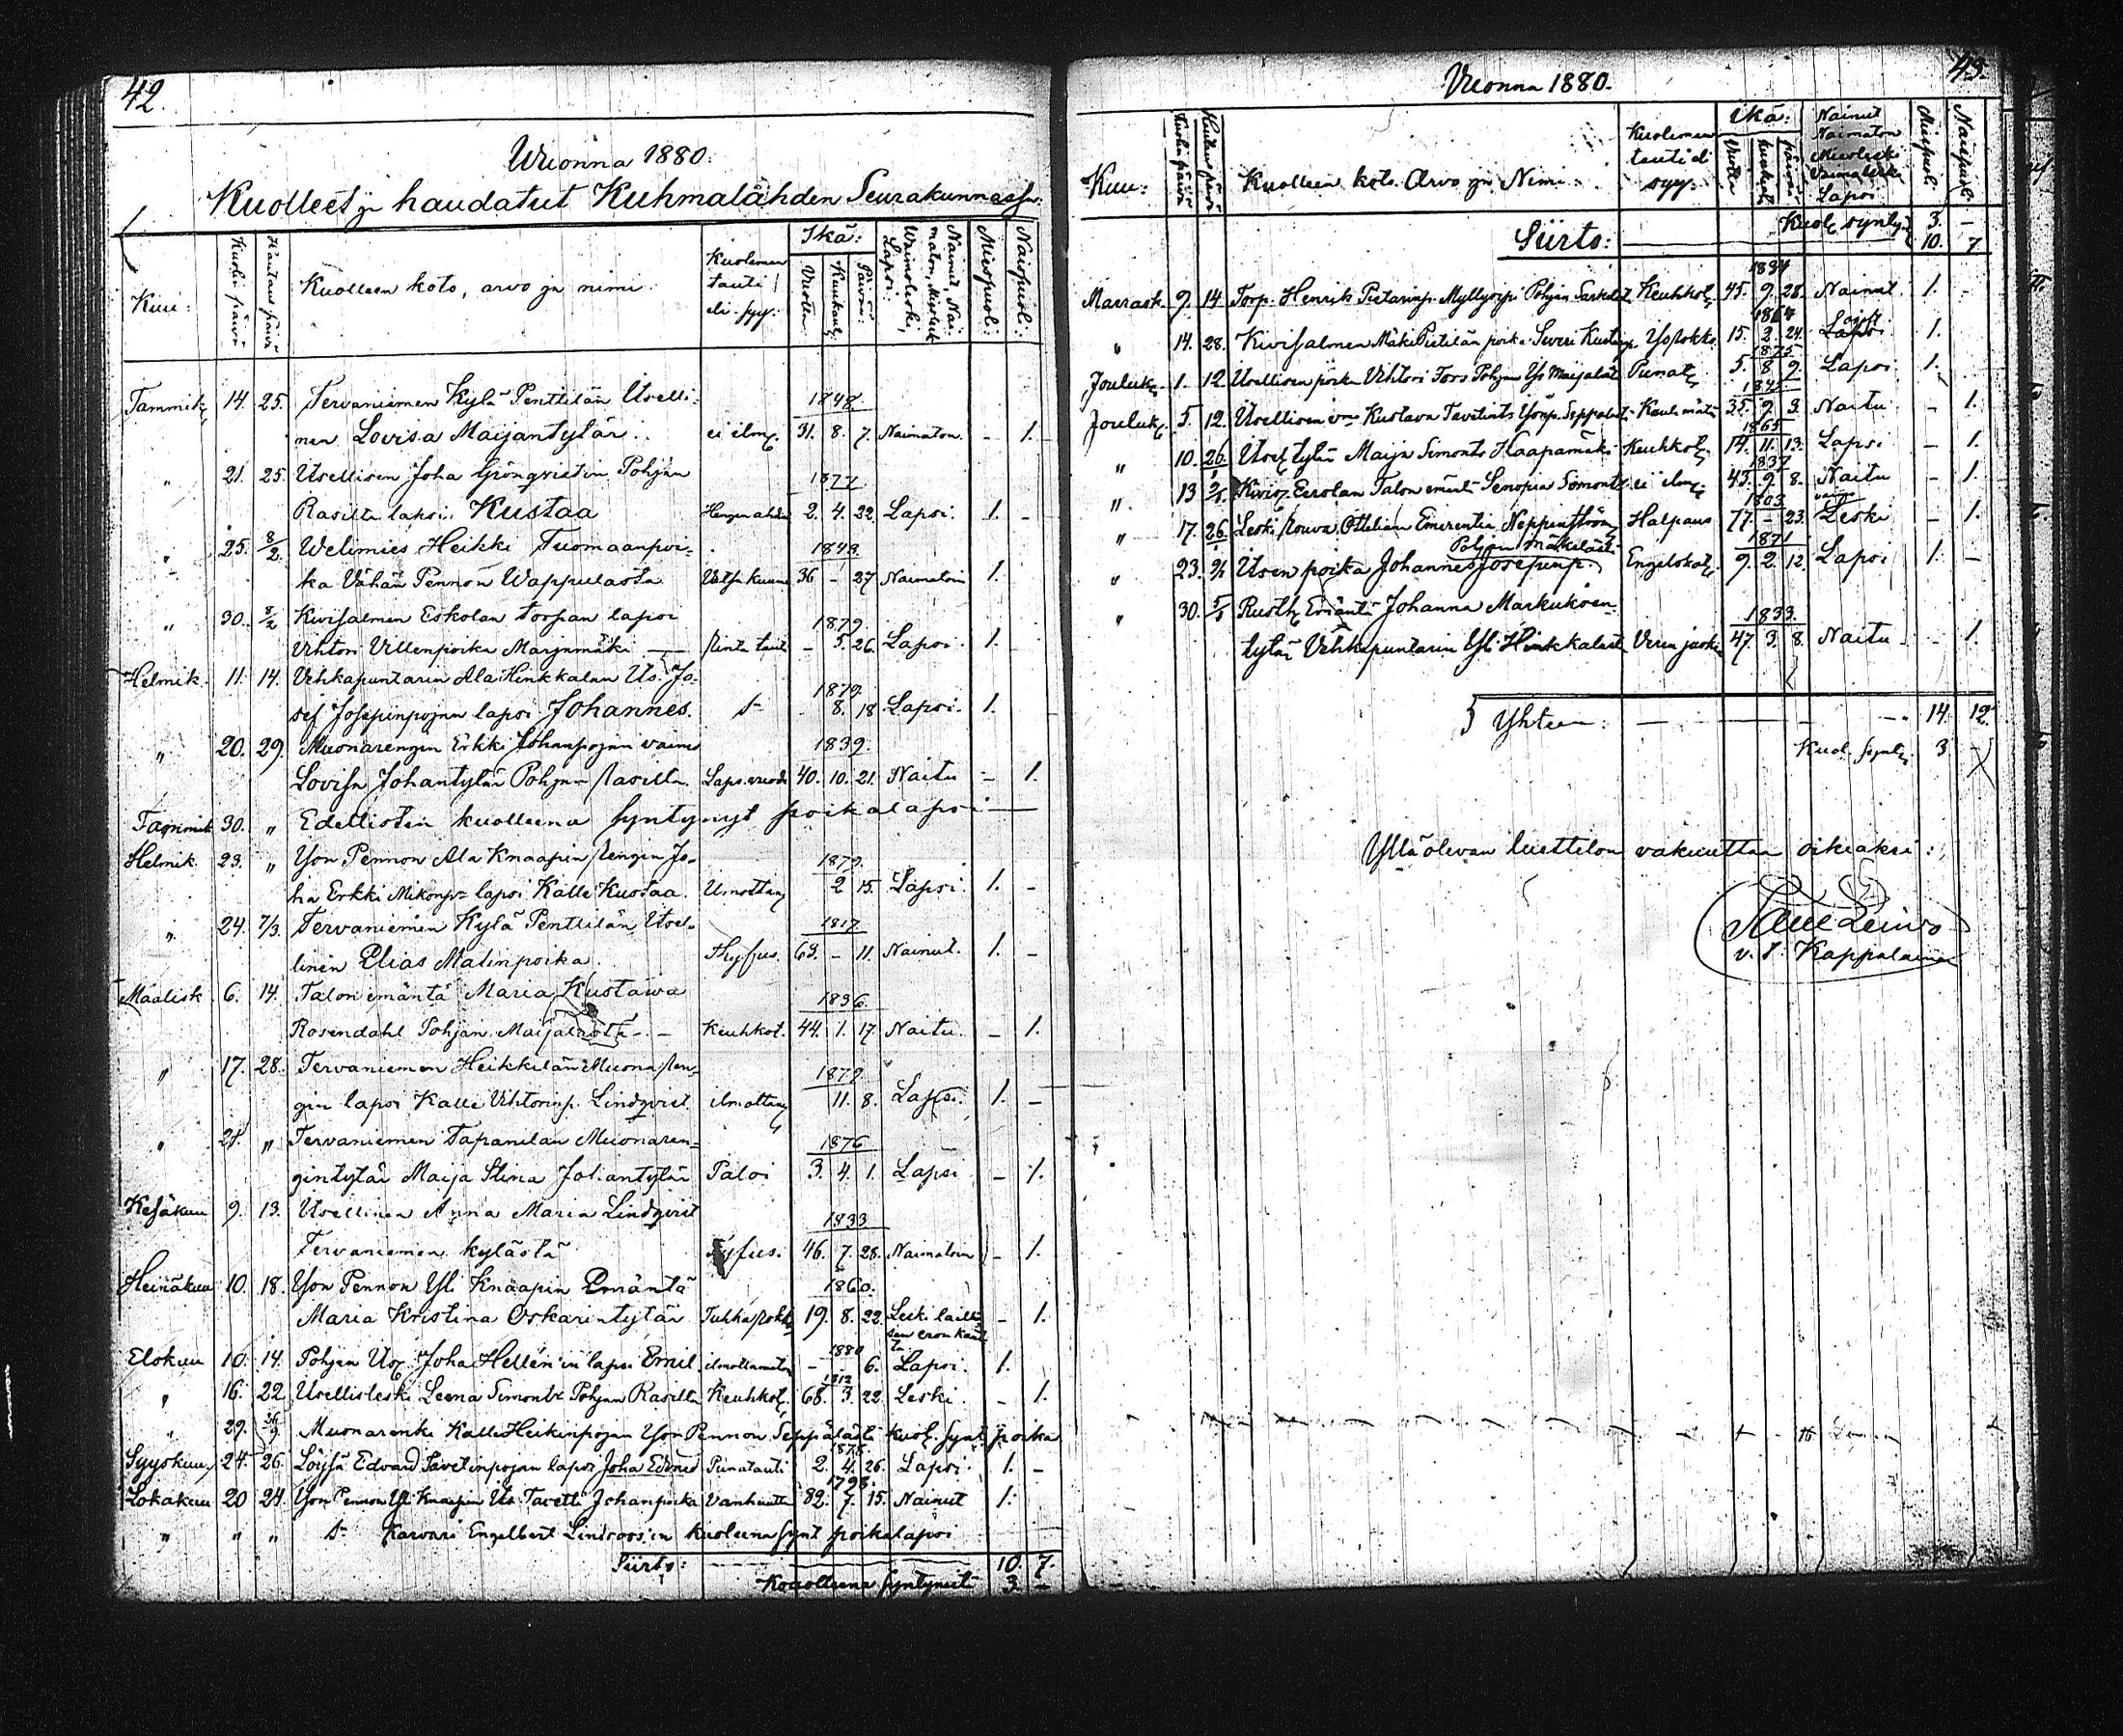 42.
Wuonna 1880.
Kuolleet ja haudatut Kuhmalahden Seurakunnassa.
Kuu:
Kuoli päivä
Hautaus päivä
Kuolleen koto, arvo ja nimi.
Kuoleman tauti eli syy:
Ikä:
Vuotta
Kuukautta
Päivää
Nainut, Naimaton, Miesleski, Waimoleski, Lapsi.
Miespuoli:
Naispuoli:
Tammik. 14. 25. Tervaniemen Kylä Penttilän Itselli- 1848.
nen Lovisa Maijantytär. ei ilm. 31. 8. 7. Naimaton. - 1.
" 21. 25. Itsellisen Joha Grönqvistin Pohjan 1877
Rasilta lapsi Kustaa Hengenahdis 2. 4. 22. Lapsi. 1. -
" 25. 8/2. Welimies Heikki Tuomaanpoi- 1843.
ka Vähän Pennon Wappulasta 36 - 27 Naimatoin 1.
" 30. 8/2 Kivisalmen Eskolan torpan lapsi 1879.
Vihtori Villenpoika Marjamäki - Rinta tauti - 5. 26. Lapsi. 1. -
Helmik. 11. 14. Vehkapuntarin Ala Hinkkalan Its. Jo- 1879.
sef Josepinpojan lapsi Johannes. S- 8. 18. Lapsi. 1. -
" 20. 29. Muonarengin Erkki Johanpojan vaimo 1839.
Lovisa Johantytär Pohjan Rasilta. Laps.vuode 40. 10. 21. Naitu - 1.
Tammik. 30. " Edellisten kuolleena syntynyt poikalapsi
Helmik. 23. " Yön Pennon Ala Knaapin Rengin Jo- 1879.
ha Erkki Mikonp. lapsi Kalle Kustaa. Ilmottam 2 15. Lapsi. 1. -
" 24. 7/3. Tervaniemen Kylä Penttilän Itsel- 1817
linen Elias Matinpoika. Thyfus. 63. - 11. Nainut. 1. -
Maalisk. 6. 14. Talon emäntä Maria Kustawa 1836.
Rosendahl Pohjan Maijalasta - Keuhkot. 44. 1. 17. Naitu. - 1.
" 17. 28. Tervaniemen Heikkilän Muona Ren- 1879.
gin lapsi Kalle Vihtorinp. Lindqvist. ilmottam 11. 8. Lapsi. 1. -
" 21. " Tervaniemen Tapanilan Muonaren- 1876
gintytär Maija Stina Johantytär Paloi 3. 4. 1. Lapsi - 1.
Kesäkuu 9. 13. Itsellinen Anna Maria Lindqvist 1833
Tervaniemen kylästä Tyfus. 46. 7. 28. Naimatoin - 1.
Heinäkuu 10. 18. Yön Pennon Yli Knaapin Emäntä 1860.
Maria Kristina Oskarintytär Tuhkarokk 19. 8. 22. Leski laillisen eron kautta - 1.
Elokuu 10. 14. Pohjan Its. Joha Hellén'in lapsi Emil ilmottamaton 1880 - - 6. Lapsi. 1.
" 16. 22 Itsellisleski Leena Simontr Pohjan Rasilta Keuhkot. 1812 68. 3. 22. Leski. - 1.
" 29. Muonarenki Kalle Heikinpojan Yön Pennon Seppälästä kuol. synt. poika
Syyskuu 24. 26. Löyssä Edvard Tavetinpojan lapsi Joha Edvard Punatauti 1878. 2. 4. 26. Lapsi. 1. -
Lokakuu 20 24. Yön Pennon Yli Knaapin Its. Tavetti Johanpoika Vanhuutta 1798. 82. 7. 15. Nainut 1.
" " " S- Karvari Engelbert Lindroos'in kuoleena synt poikalapsi
Siirto: 10. 7.
Kuolleena syntyneitä 3. -
43.
Vuonna 1880.
Kuu:
Kuolin päivä
Hautaus päivä
Kuolleen koto. Arvo ja Nimi.
Kuoleman tauti eli syy:
Ikä:
Vuotta
kuukautta
päivää
Nainut Naimaton Miesleski Vaimoleski Lapsi
Miespuol.
Naispuol.
Kuol. synty 3. -
Siirto: 10. 7
Marrask. 9. 14. Torp. Henrik Pietarinp. Myllyorpi Pohjan Keuhkot. 1834 45. 9. 28. Nainut. 1. -
" 14. 28. Kivisalmen Mäki Pietilän poika Severi Kustaap. Isorokko 15. 2. 24. Lapsi 1.
Jouluk. 1. 12 Itsellisen poika Vihtori Fors Pohjan Yli Maijalast Punat. 1875. 5. 8 9. Lapsi 1.
Jouluk. 5. 12. Itsellisen vmo Kustava Tavetints Yönp. Seppälast 35. 9. 3. Naitu - 1.
" 10. 26. Its. tytär Maija Simonts Haapamäki Keuhkot. 1865 14. 11. 13. Lapsi - 1.
" 13 Eerolan Talon emäntä Senopia Simonts ei ilm. 1837 43. 9 8. Naitu - 1.
" 17. 26. Leski Rouva Ottilian Emerentia Neppenström Halpaus 1803 77. - 23. Leski - 1.
Pohjan mäkelästä
" 23. Itsen poika Johannes Josepinp. 1871 9. 2. 12. Lapsi 1. -
" 30. 5/1 Rusth. Emäntä Johanna Markuksen- 1833.
tytär Vehkapuntarin Yli Hinkkalasta Veren juoks 47. 3. 8. Naitu - 1.
Yhteen: - - - - 14. 12.
Kuol. synt. 3 -
Yllä olevan luettelon vakuuttaa oikiaksi:
v. t. Kappalainen